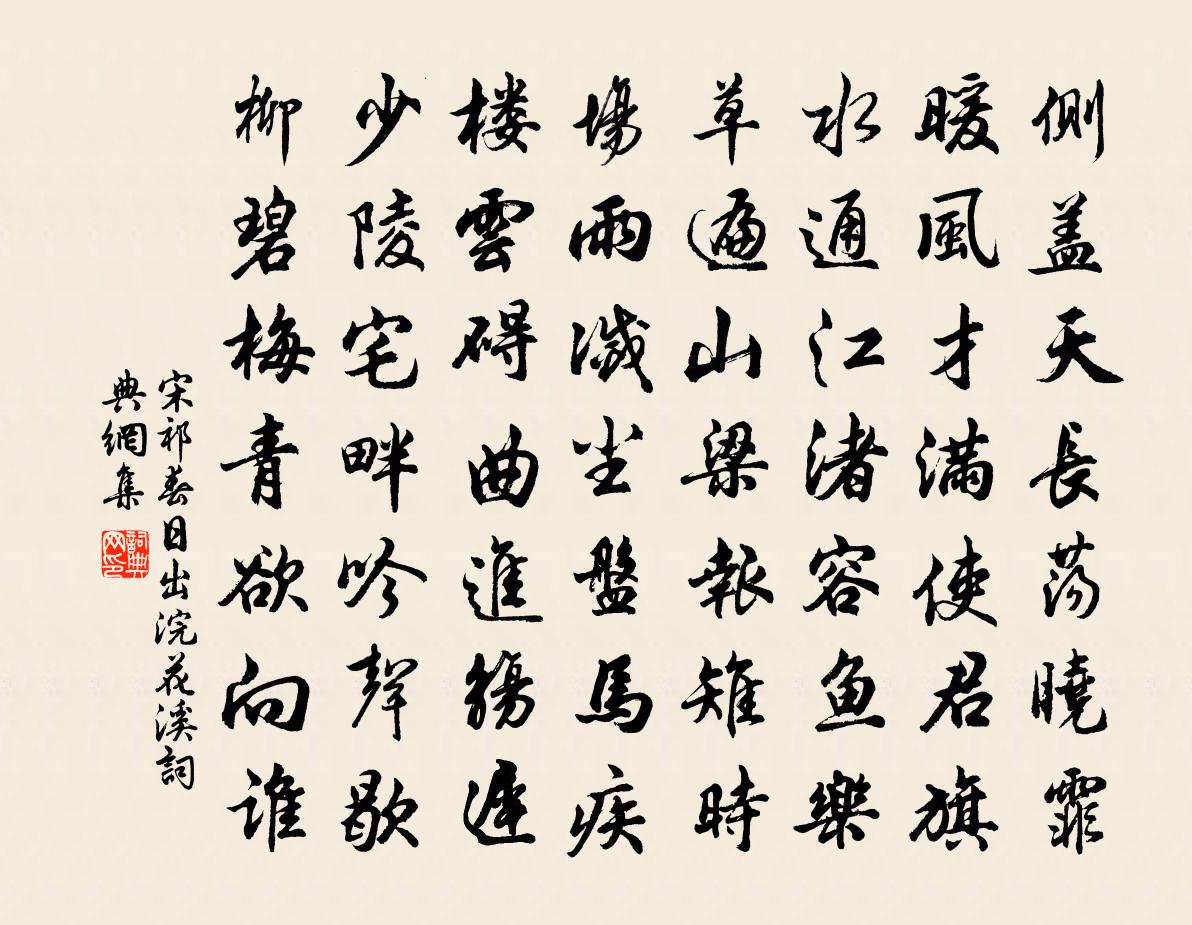 側盖天長蕩曉霏
暖風才滿使君旗
水通江渚容魚樂
草遍山梁報雉時
場雨减尘盤馬疾
楼雲碍曲進觴遲
少陵宅畔吟聲歇
柳碧梅青欲向誰
宋祁春日出浣花溪詞
典網集
詞典网印